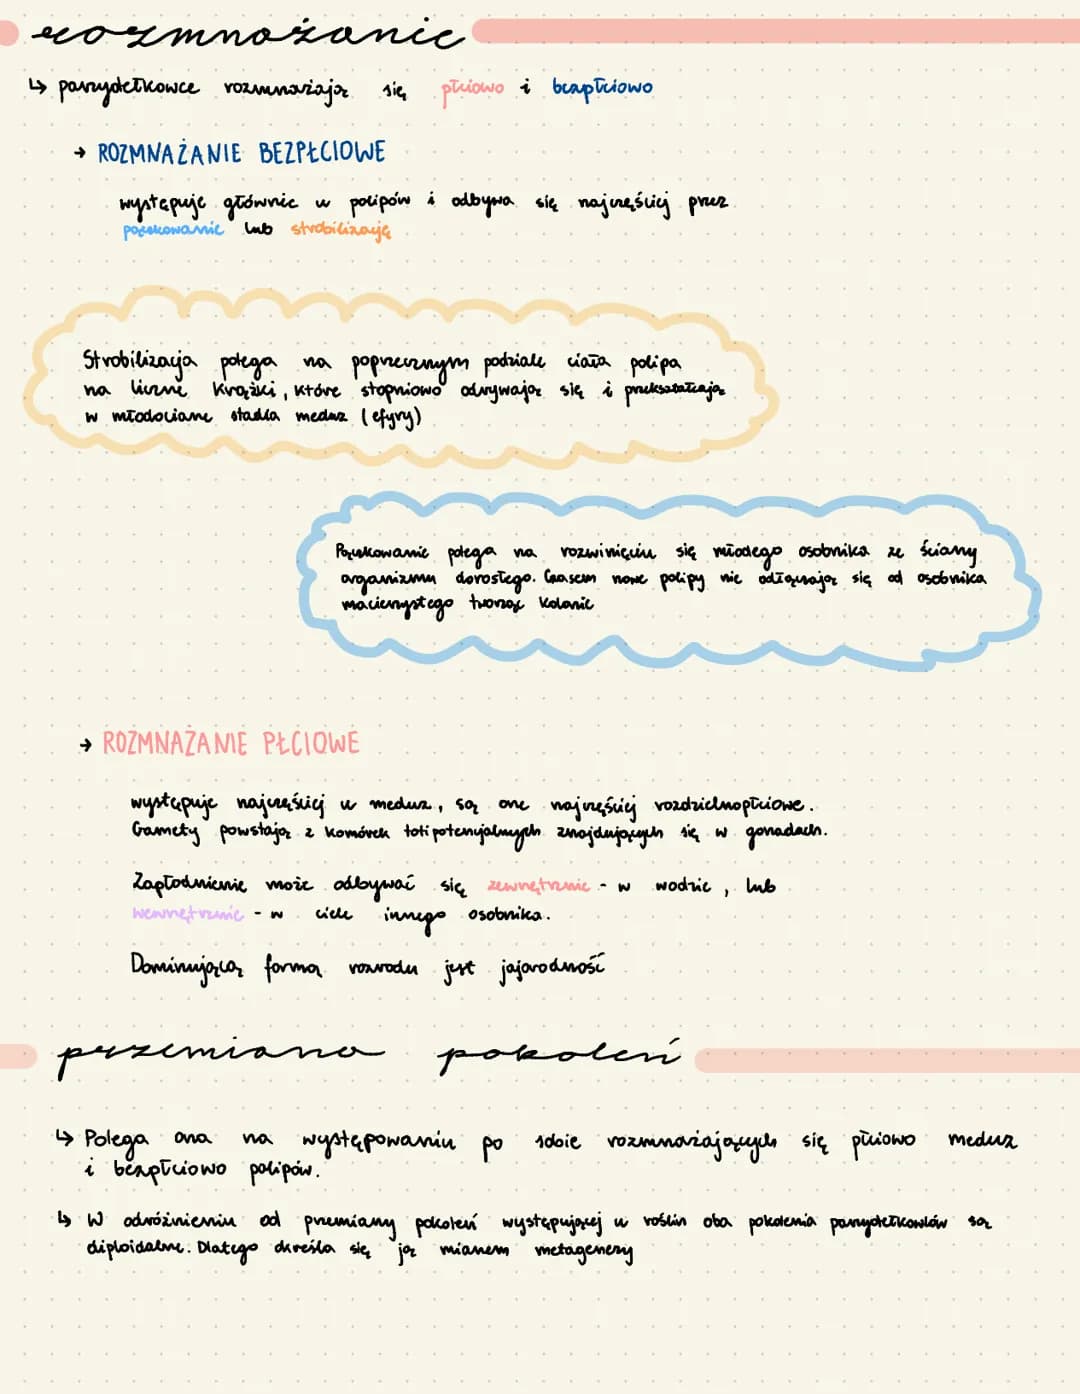 rozmnażanie
↳ parzydełkowce rozmnażają się płciowo i bezpłciowo
→ ROZMNAŻANIE BEZPŁCIOWE
występuje głównie u polipów i odbywa się najczęściej przez
pączkowanie lub strobilizację
Strobilizacja polega na poprzecznym podziale ciała polipa
na liczne krążki, które stopniowo odrywają się i przekształcają
w młodociane stadia meduz (efyry)
Pączkowanie polega na rozwinięciu się młodego osobnika ze ściany
organizmu dorosłego. Czasem nowe polipy nie odłączają się od osobnika
macierzystego tworząc kolonie
→ ROZMNAŻANIE PŁCIOWE
występuje najczęściej u meduz, są one najczęściej rozdzielnopłciowe.
Gamety powstają z komórek totipotencjalnych znajdujących się w gonadach.
Zapłodnienie może odbywać się zewnętrznie - w wodzie, lub
wewnętrznie - w ciele innego osobnika.
Dominującą formą rozrodu jest jajorodność
przemiana pokoleń
↳ Polega ona na występowaniu po sobie rozmnażających się płciowo meduz
i bezpłciowo polipów.
↳ W odróżnieniu od przemiany pokoleń występującej u roślin oba pokolenia parzydełkowców są
diploidalne. Dlatego określa się ją mianem metagenezy